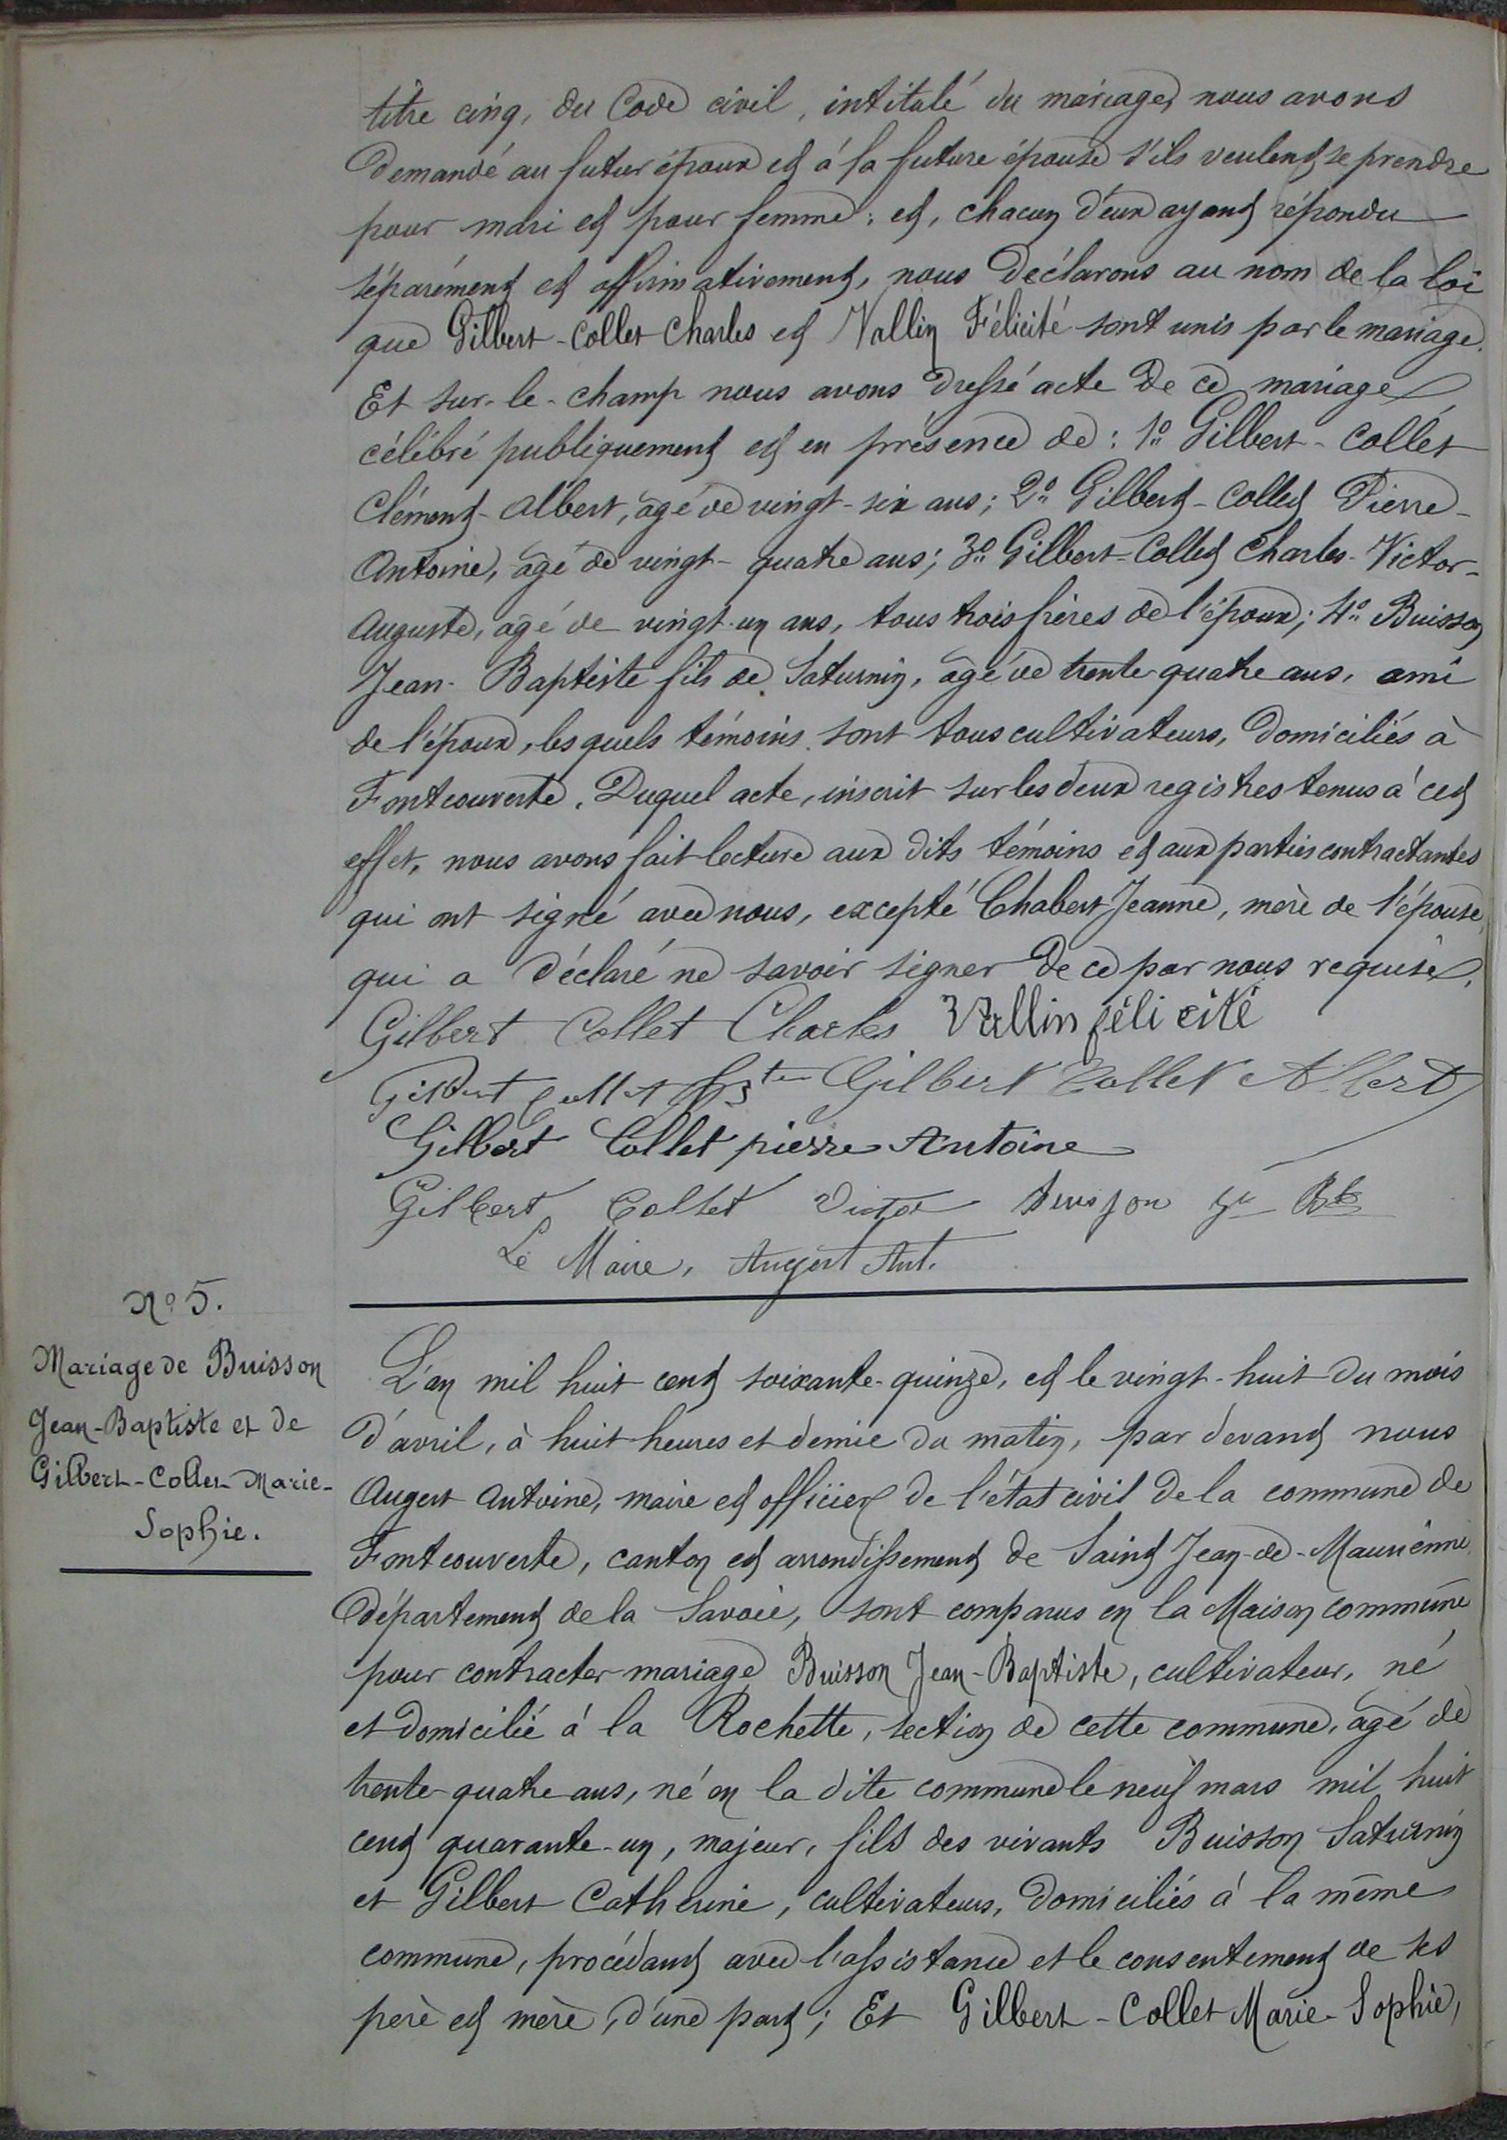 titre cinq, du Code civil, intitulé du mariage, nous avons
demandé au futur époux et à la future épouse s'ils veulent se prendre
pour mari et pour femme ; et, chacun d'eux ayant répondu
séparément et affirmativement, nous déclarons au nom de la loi
que Gilbert-Collet Charles et Vallin Félicité sont unis par le mariage.
Et sur-le-champ nous avons dressé acte de ce mariage
célébré publiquement et en présence de : 1° Gilbert-Collet
Clément-Albert, âgé de vingt-six ans ; 2° Gilbert-Collet Pierre-
Antoine, âgé de vingt-quatre ans ; 3° Gilbert-Collet Charles-Victor-
Auguste, âgé de vingt-un ans, tous trois frères de l'époux ; 4° Buisson
Jean-Baptiste fils de Saturnin, âgé de trente quatre ans, ami
de l'époux, lesquels témoins sont tous cultivateurs, domiciliés à
Fontcouverte. Duquel acte, inscrit sur les deux registres tenus à cet
effet, nous avons fait lecture aux dits témoins et aux parties contractantes
qui ont signé avec nous, excepté Chabert Jeanne, mère de l'épouse,
qui a déclaré ne savoir signer de ce par nous requise.
Gilbert Collet Charles Vallin félicité
Gilbert Collet Gilbert Collet Albert
Gilbert Collet pierre Antoine
Gilbert Collet Victor buisson Jn Bte
Le Maire, Augert Ant.
N° 5.
Mariage de Buisson
Jean-Baptiste et de
Gilbert-Collet Marie-
Sophie.
L'an mil huit cent soixante-quinze, et le vingt-huit du mois
d'avril, à huit heures et demie du matin, par devant nous
Augert Antoine, maire et officier de l'état civil de la commune de
Fontcouverte, canton et arrondissement de Saint Jean-de-Maurienne,
département de la Savoie, sont comparus en la Maison commune
pour contracter mariage Buisson Jean-Baptiste, cultivateur, né
et domicilié à la Rochette, section de cette commune, âgé de
trente-quatre ans, né en la dite commune le neuf mars mil huit
cent quarante-un, majeur, fils des vivants Buisson Saturnin
et Gilbert Catherine, cultivateurs, domiciliés à la même
commune, procédant avec l'assistance et le consentement de ses
père et mère, d'une part ; Et Gilbert-Collet Marie-Sophie,